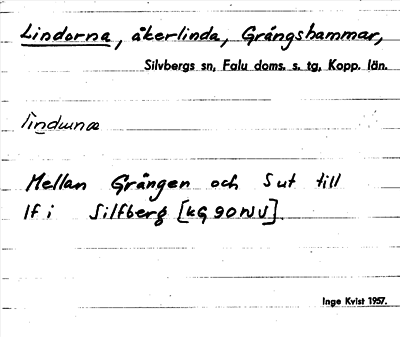 Lindorna, åkerlinda, Grängshammar,
Silvbergs sn, Falu doms. s. tg, Kopp. län.
Mellan Grängen och Sut till
If i Silfberg [kG 90 NV].
Inge Kvist 1957.